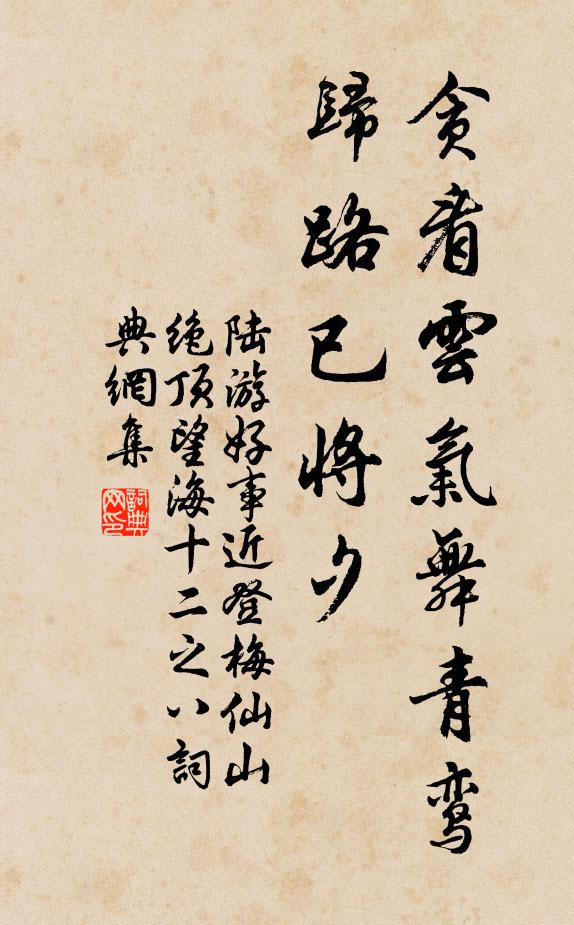 贪看雲氣舞青鸾
歸路已將夕
陆游好事近登梅仙山
绝顶望海十二之八詞
典網集
詞典
网印